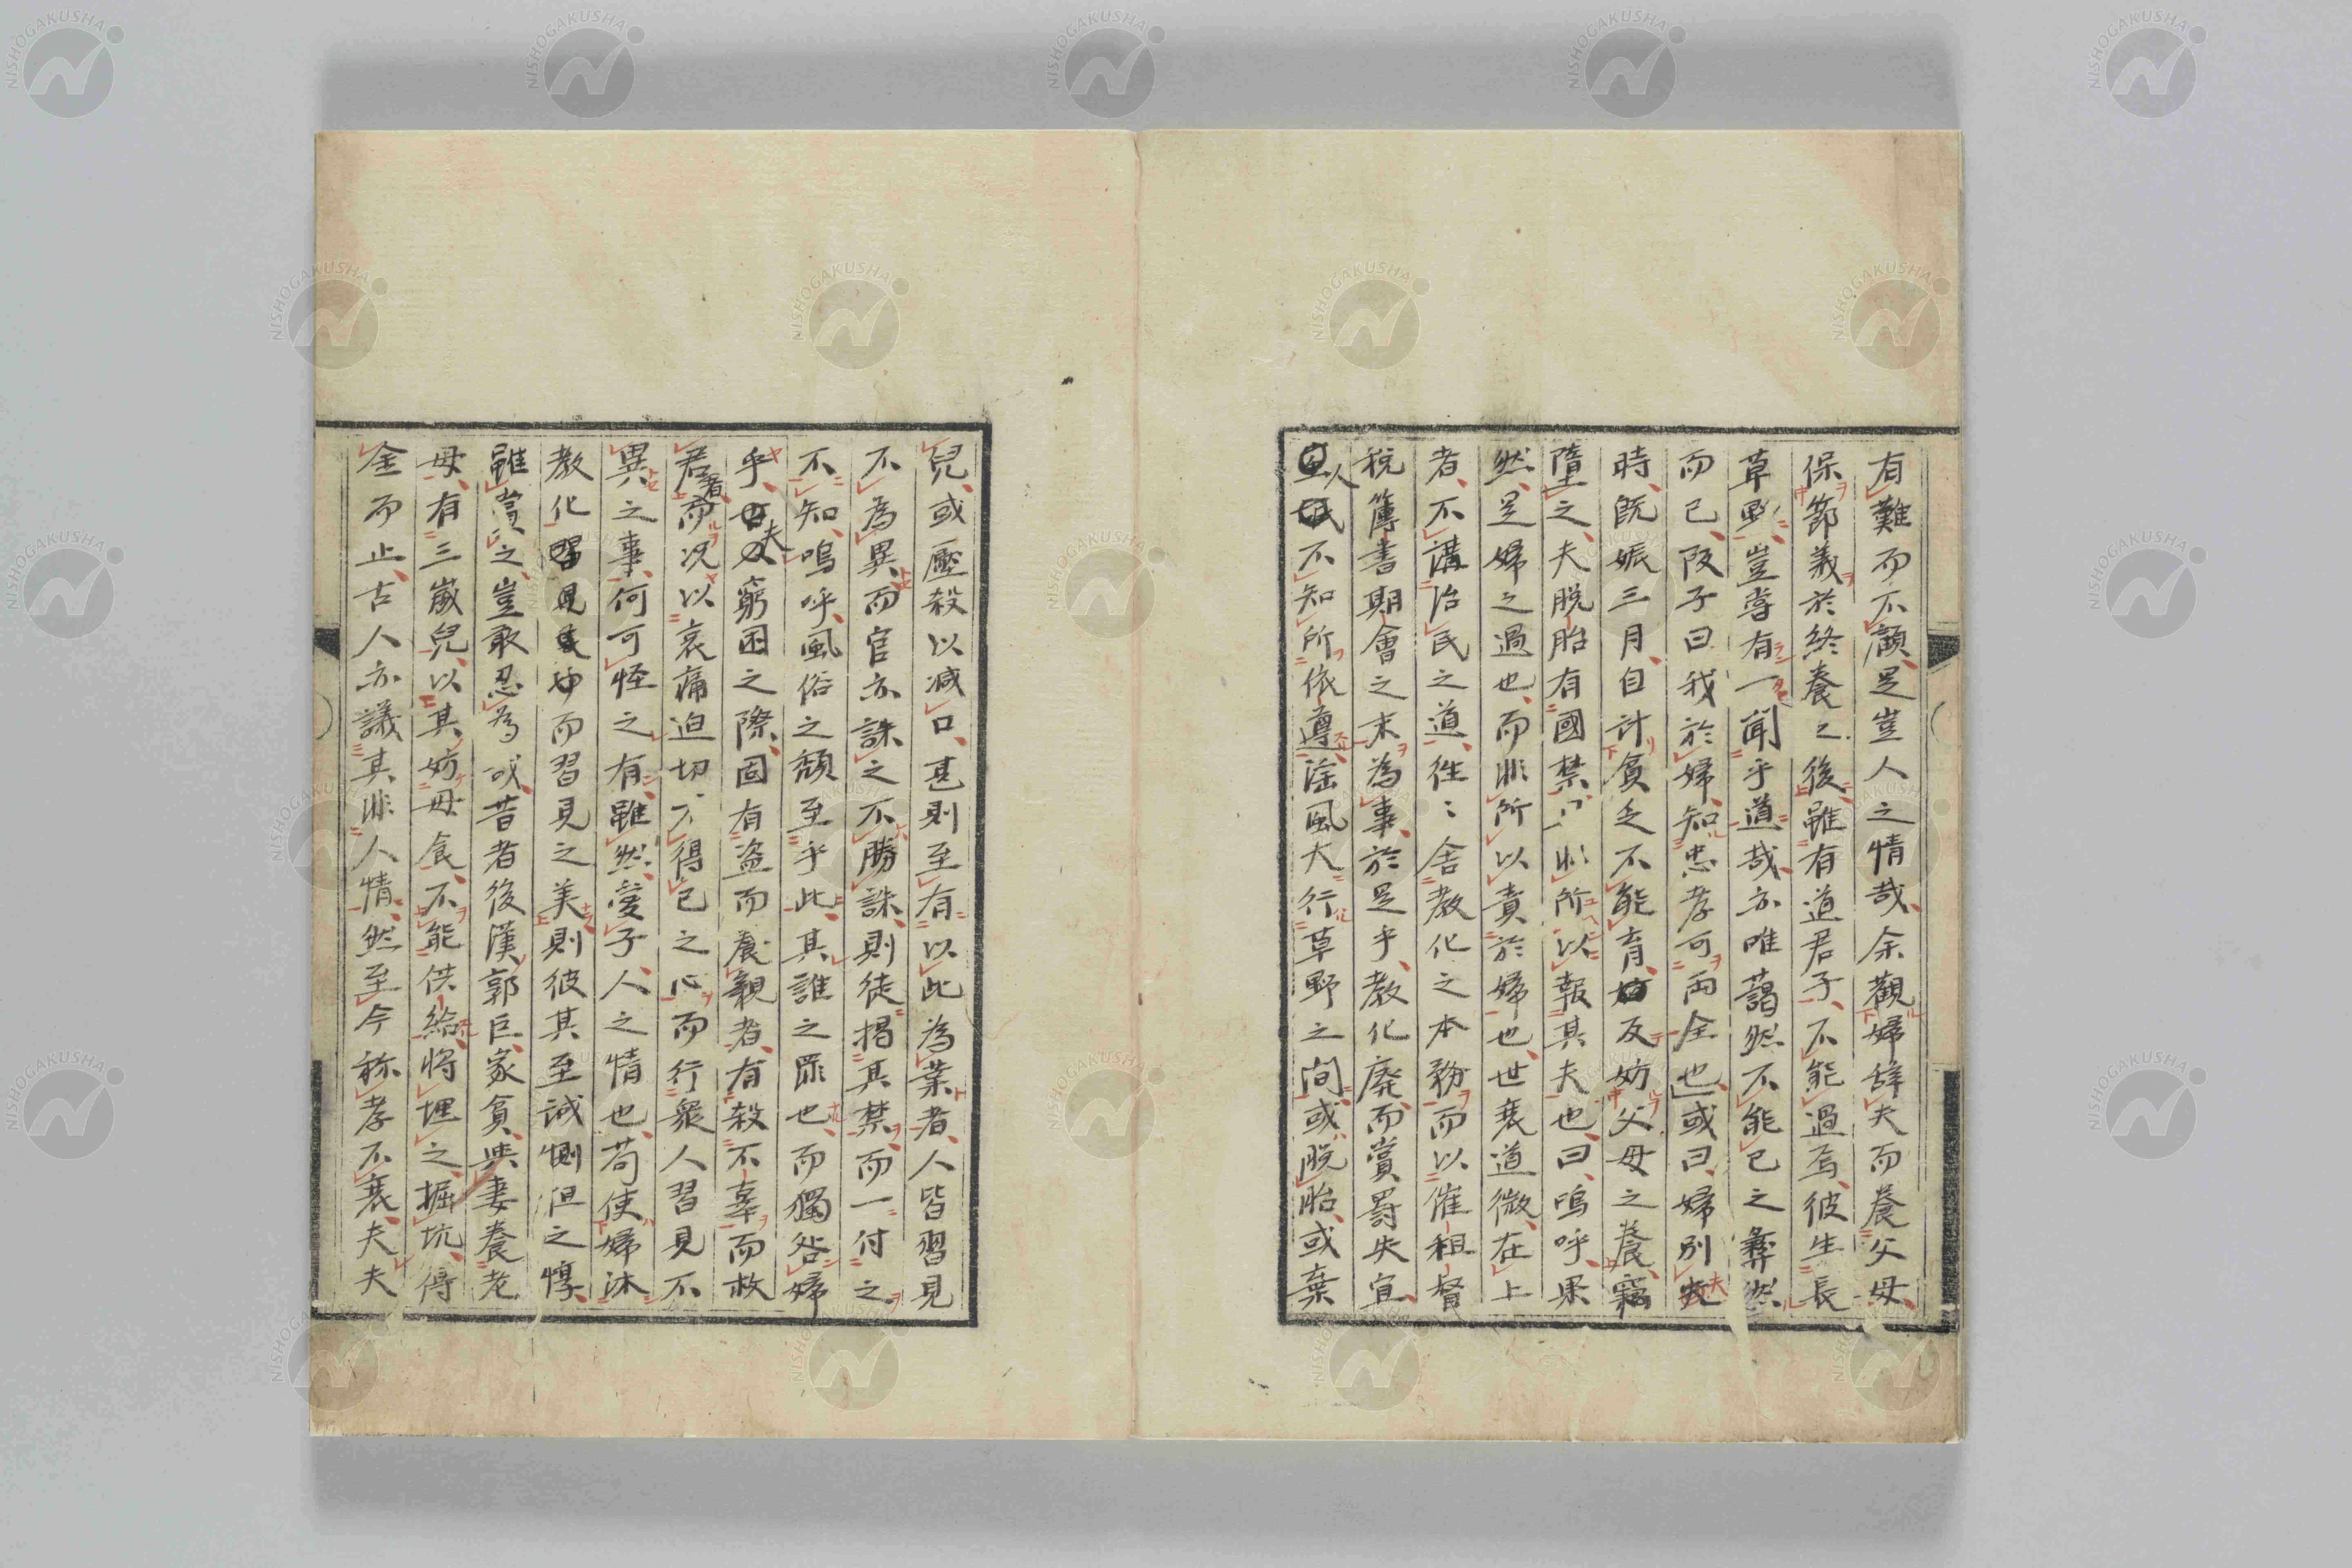 有難而不顧是豈人之情哉余觀婦辞夫而養父母
保節義於終養之後雖有道君子不能過焉彼生長
草野豈嘗有一聞乎道哉亦唯藹然不能已之彝然
而已阪子曰我於婦知忠孝可両全也或曰婦別夫
時既娠三月自計貧乏不能育反妨父母之養竊
墮之夫脱胎有國禁非所以報其夫也曰嗚呼果
然是婦之過也而非所以責於婦也世衰道微在上
者不講治民之道往〻舎教化之本務而以催租督
税簿書期會之末為事於是乎教化廃而賞罰失宜
人民不知所依遵淫風大行草野之間或脱胎或棄
兒或壓殺以減口甚則至有以此為業者人皆習見
不為異而官亦誅之不勝誅則徒掲其禁而一付之
不知嗚呼風俗之頽至乎此其誰之罪也而獨咎婦
乎夫窮困之際固有盗而養親者有殺不辜而救
君者而况以哀痛迫切不得已之心而行衆人習見不
異之事何可怪之有雖然愛子人之情也苟使婦沐
教化而習見之美則彼其至誠惻怛之惇
雖賞之豈敢忍為哉昔者後漢郭巨家貧與妻養老
母有三歳兒以其妨母食不能供給將埋之掘坑得
金而止古人亦議其非人情然至今称孝不衰夫夫
NISHOGAKUSHA